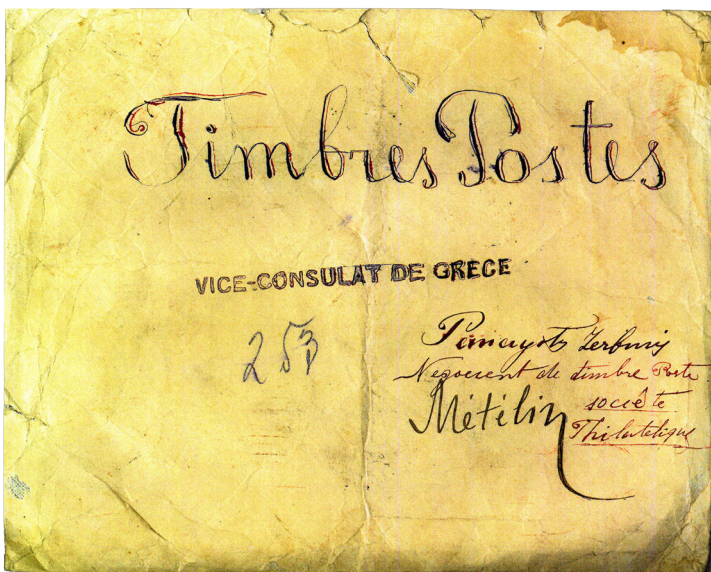 Timbres Postes
VICE-CONSULAT DE GRECE
253
Panayoti Zerbinis
Negocient de timbre Poste
société
Métélin
Philatelique